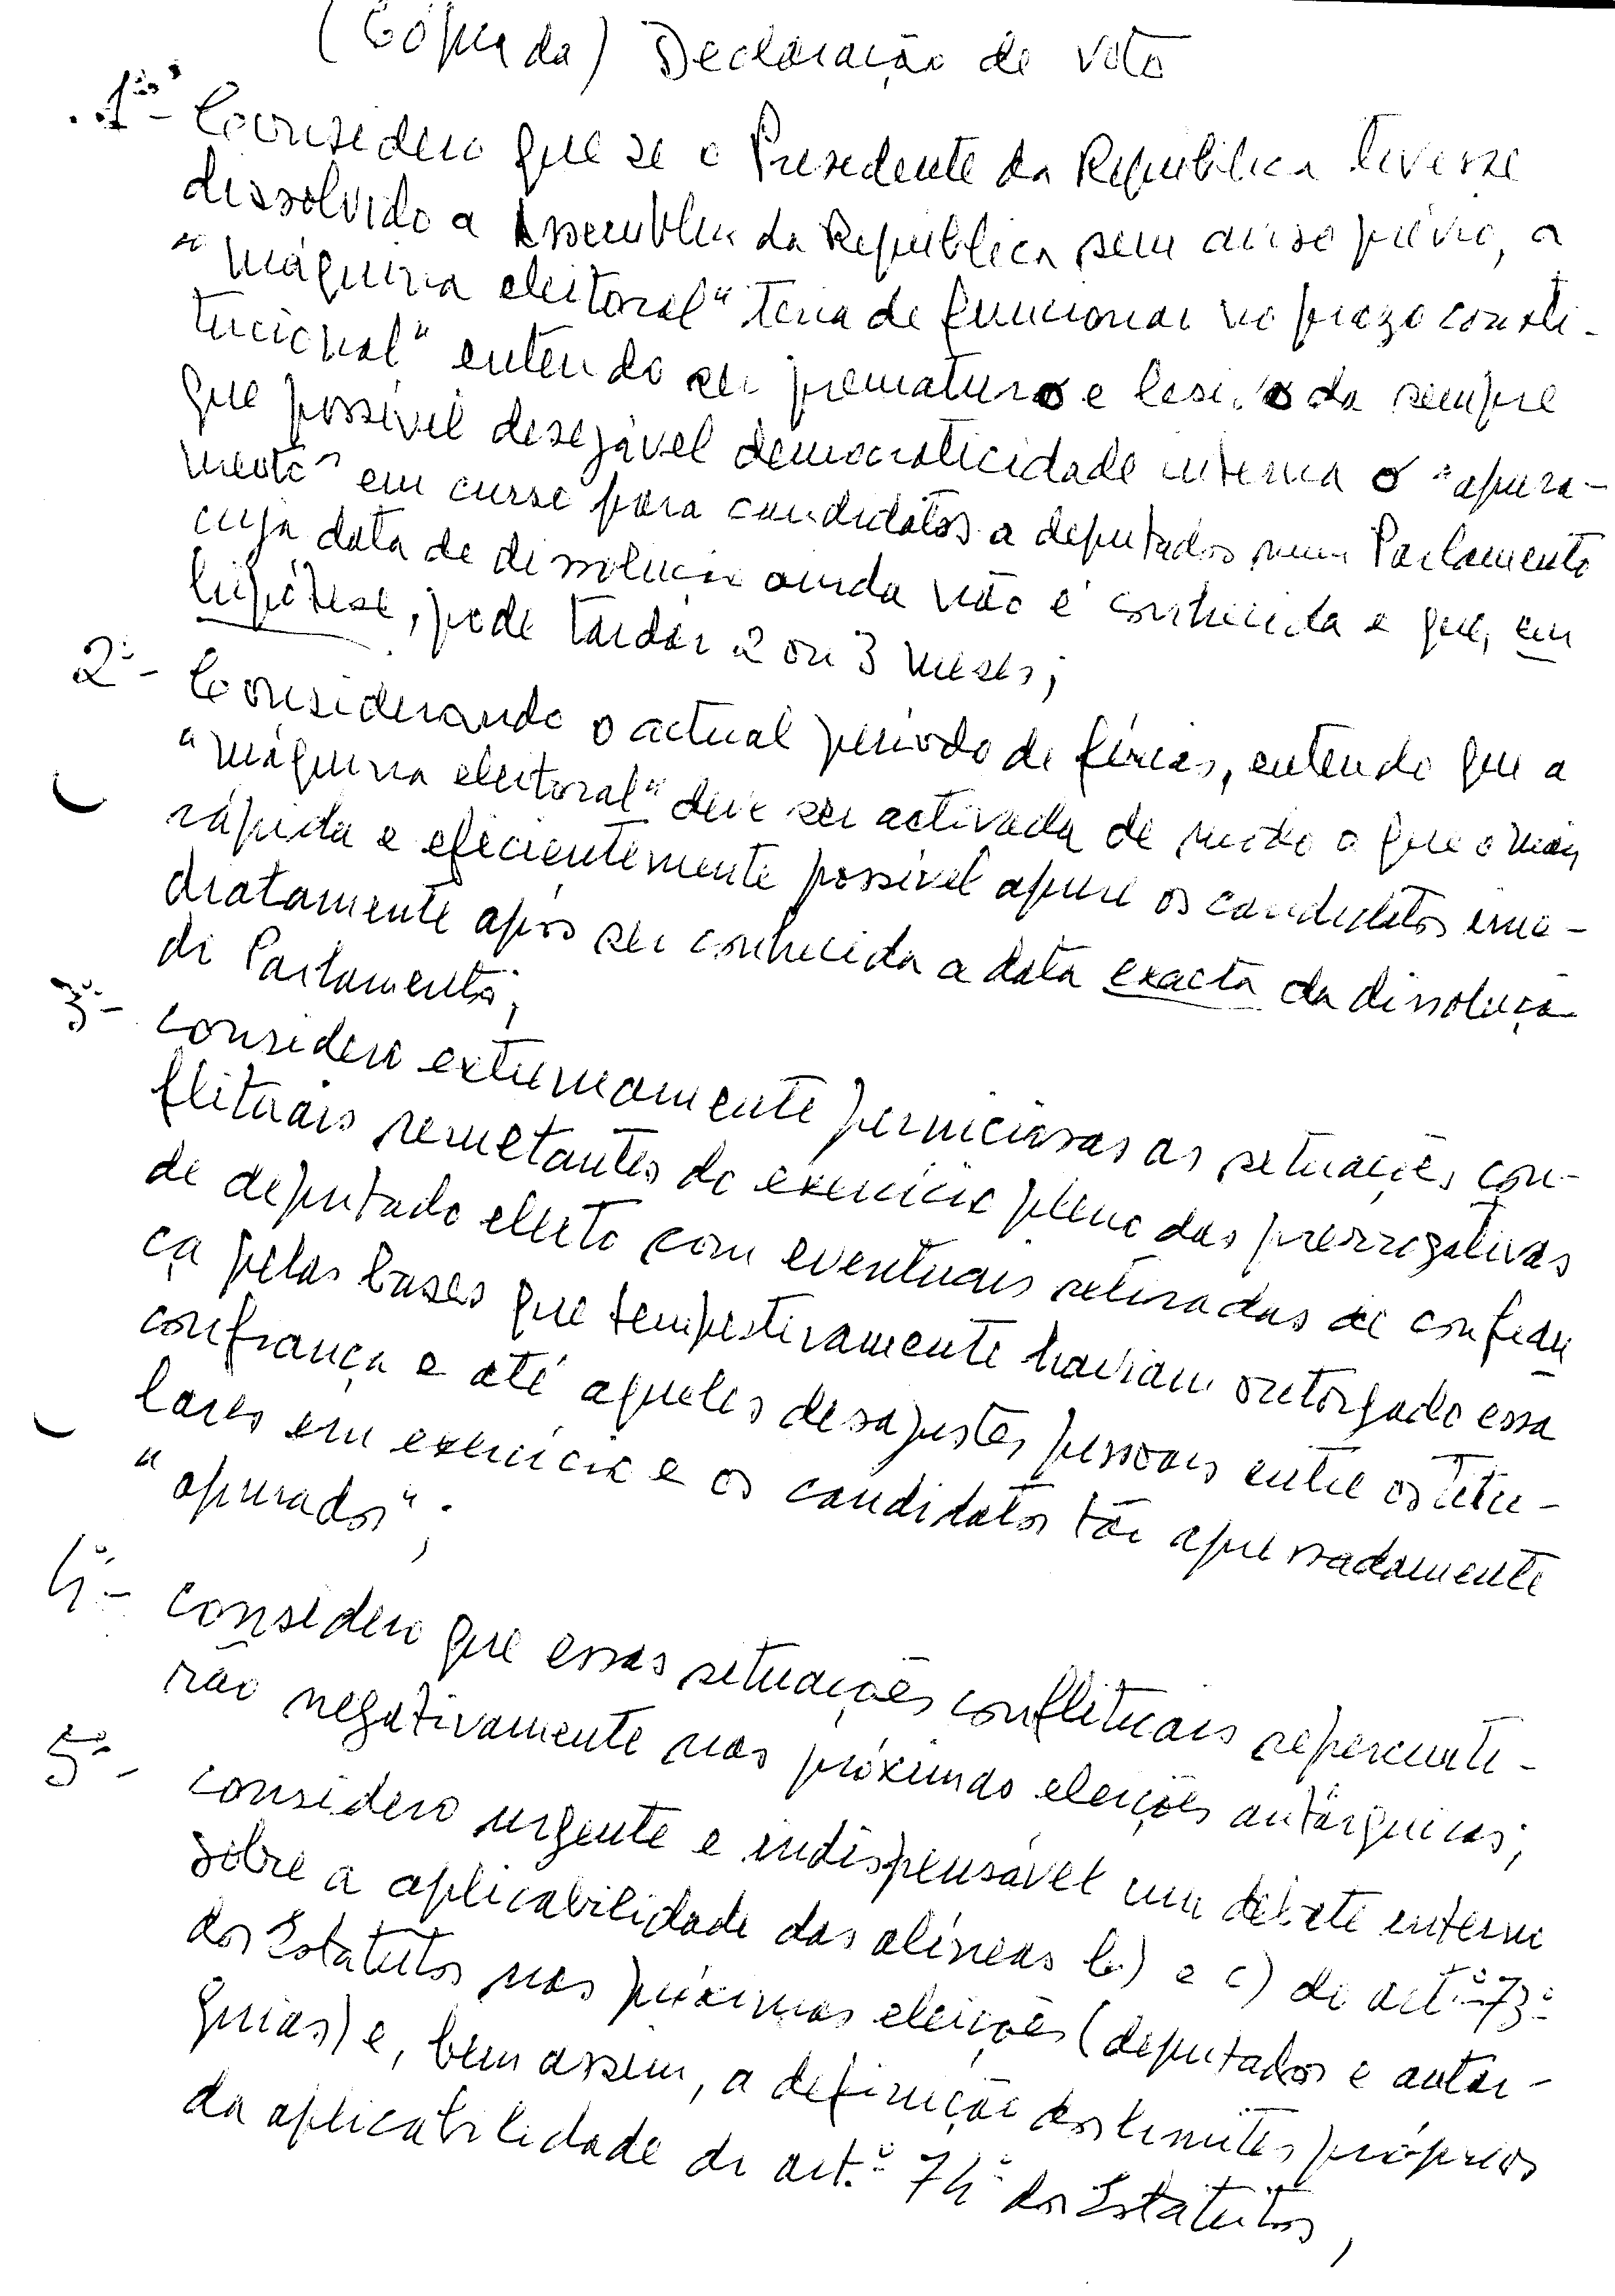 (Cópia da) Declaração de voto
1º- Considero que se o Presidente da República tivesse
dissolvido a Assembleia da República sem aviso prévio, a
"máquina eleitoral" teria de funcionar no prazo consti-
tucional" entendo ser prematuro e lesivo da sempre
que possível desejável democraticidade interna o "apura-
mento" em curso para candidatos a deputados num Parlamento
cuja data de dissolução ainda não é conhecida e que, em
hipótese, pode tardar 2 ou 3 meses;
2º- Considerando o actual período de férias, entendo que a
"máquina eleitoral" deve ser activada de modo a que o mais
rápida e eficientemente possível apure os candidatos ime-
diatamente após ser conhecida a data exacta da dissolução
do Parlamento;
3º- Considero extremamente perniciosas as situações con-
flituais resultantes do exercício pleno das prerrogativas
de deputado eleito com eventuais retiradas de confian
ça pelas bases que tempestivamente haviam outorgado essa
confiança e até aqueles desajustes pessoais entre os titu-
lares em exercício e os candidatos tão apressadamente
"apurados";
4º- Considero que essas situações conflituais repercuti-
rão negativamente nas próximas eleições autárquicas;
5º- Considero urgente e indispensável um debate interno
sobre a aplicabilidade das alíneas b) e c) do artº 73º
dos Estatutos nas próximas eleições (deputados e autar-
quias) e, bem assim, a definição dos limites próprios
da aplicabilidade do art.º 74º dos Estatutos,